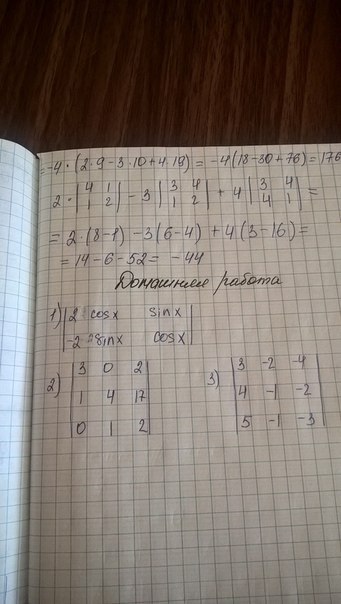 =-4·(2·9-3·10+4·19)=-4(18-30+76)=176
2·|4 1| -3|3 4| +4|3 4|=
|1 2| |1 2| |4 1|
=2·(8-1)-3(6-4)+4(3-16)=
=14-6-52=-44
Домашняя работа
1) |2 cosx sinx|
|-2 sinx cosx|
2) |3 0 2|
|1 4 17|
|0 1 2|
3) |3 -2 -4|
|4 -1 -2|
|5 -1 -3|